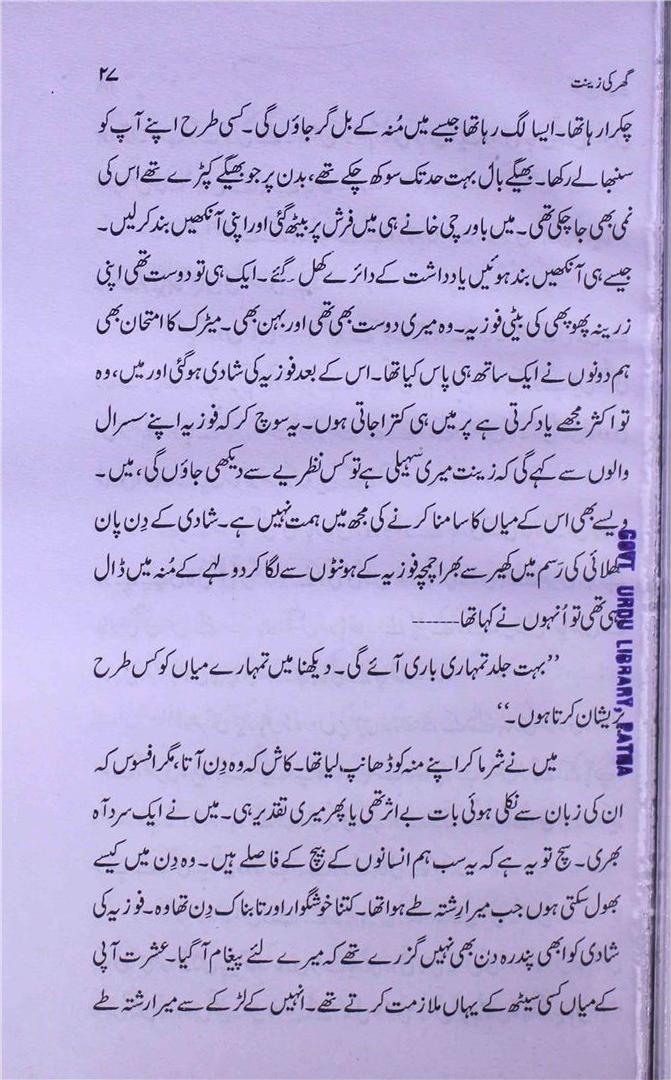 گھر کی زینت ۲۷
چکرا رہا تھا۔ ایسا لگ رہا تھا جیسے میں مُنہ کے بل گر جاؤں گی۔ کسی طرح اپنے آپ کو
سنبھالے رکھا۔ بھیگے بال بہت حد تک سوکھ چکے تھے، بدن پر جو بھیگے کپڑے تھے اس کی
نمی بھی جا چکی تھی۔ میں باورچی خانے ہی میں فرش پر بیٹھ گئی اور اپنی آنکھیں بند کر لیں۔
جیسے ہی آنکھیں بند ہوئیں یادداشت کے دائرے کھل گئے۔ ایک ہی تو دوست تھی اپنی
زرینہ پھوپھی کی بیٹی فوزیہ۔ وہ میری دوست بھی تھی اور بہن بھی۔ میٹرک کا امتحان بھی
ہم دونوں نے ایک ساتھ ہی پاس کیا تھا۔ اس کے بعد فوزیہ کی شادی ہوگئی اور میں، وہ
تو اکثر مجھے یاد کرتی ہے پر میں ہی کترا جاتی ہوں۔ یہ سوچ کر کہ فوزیہ اپنے سسرال
والوں سے کہے گی کہ زینت میری سہیلی ہے تو کس نظریے سے دیکھی جاؤں گی، میں۔
ویسے بھی اس کے میاں کا سامنا کرنے کی مجھ میں ہمت نہیں ہے۔ شادی کے دِن پان
کھلائی کی رَسم میں کھیر سے بھرا چمچہ فوزیہ کے ہونٹوں سے لگا کر دولہے کے مُنہ میں ڈال
رہی تھی تو اُنہوں نے کہا تھا-------
’’بہت جلد تمہاری باری آئے گی۔ دیکھنا میں تمہارے میاں کو کس طرح
پریشان کرتا ہوں۔‘‘
میں نے شرما کر اپنے منہ کو ڈھانپ لیا تھا۔ کاش کہ وہ دِن آتا، مگر افسوس کہ
ان کی زبان سے نکلی ہوئی بات بے اثر تھی یا پھر میری تقدیر ہی۔ میں نے ایک سرد آہ
بھری۔ سچ تو یہ ہے کہ یہ سب ہم انسانوں کے بیچ کے فاصلے ہیں۔ وہ دِن میں کیسے
بھول سکتی ہوں جب میرا رِشتہ طے ہوا تھا۔ کتنا خوشگوار اور تابناک دِن تھا وہ۔ فوزیہ کی
شادی کو ابھی پندرہ دن بھی نہیں گزرے تھے کہ میرے لئے پیغام آ گیا۔ عشرت آپی
کے میاں کسی سیٹھ کے یہاں ملازمت کرتے تھے۔ انہیں کے لڑکے سے میرا رشتہ طے
GOVT URDU LIBRARY, PATNA